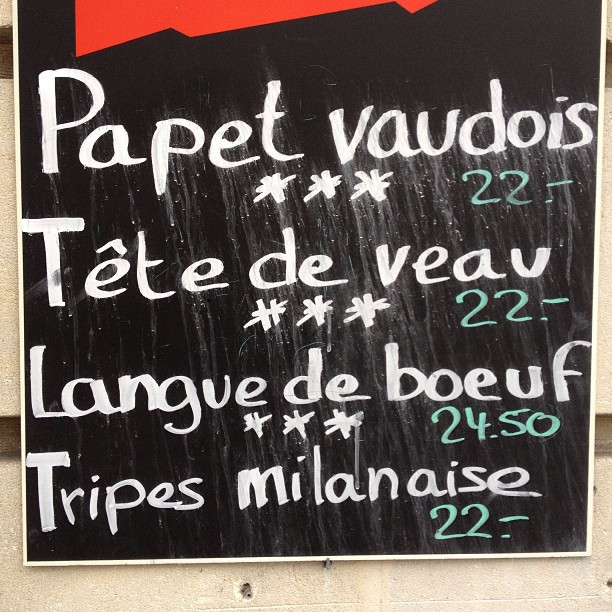 Papet vaudois
*** 22.-
Tête de veau
*** 22.-
Langue de boeuf
*** 24.50
Tripes milanaise
22.-